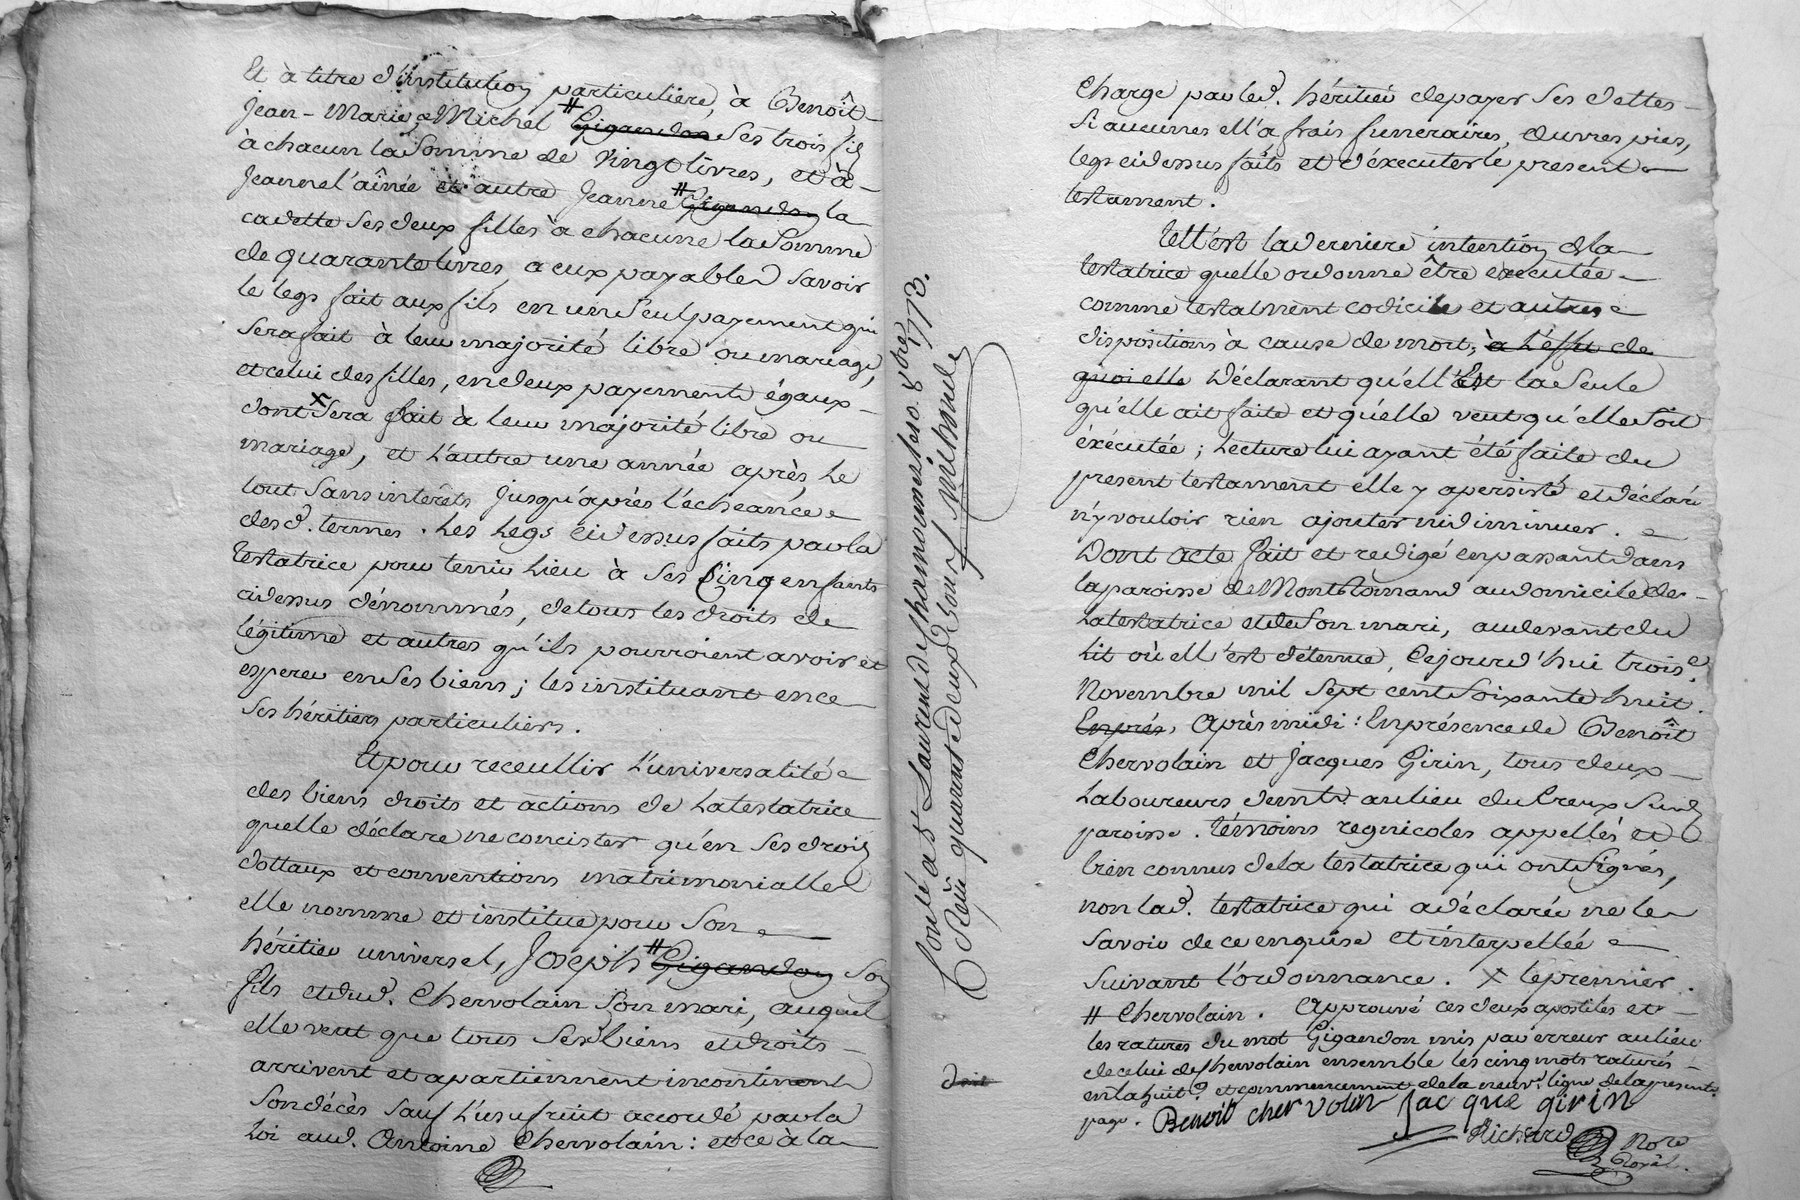 Et à titre d'institution particuliere, à Benoît-
Jean-Marie, et Michel # Gigandon ses trois fils
à chacun la Somme de vingt livres, et à -
Jeanne l'aînée et autre Jeanne # Gigandon la
cadette ses deux filles à chacune la Somme
de quarante livres, a eux payables Savoir
le legs fait aux fils en un Seul payement qui
Sera fait à leur majorité libre ou mariage,
et celui des filles, en deux payements égaux -
dont x Sera fait à leur majorité libre ou
mariage, et L'autre une année après, Le
tout Sans interêts jusqu'après l'écheance
desd. termes. Les Legs cidessus faits par la
testatrice pour tenir Lieu à ses Cinq enfants
cidessus dénommés, de tous les droits de
légitime et autres qu'ils pourroient avoir et
esperer en Ses biens; les instituant en ce
Ses héritiers particuliers.
Et pour receullir L'universalité
des biens droits et actions de La testatrice
quelle déclare ne concister qu'en Ses droits
dottaux et conventions matrimonialles
elle nomme et institue pour Son
héritier universel, Joseph # Gigandon Son
fils et dud. Chervolain Son mari, auquel
elle veut que tous Ses biens et droits -
arrivent et apartiennent incontinent
Son décès Sauf L'usufruit accordé par la
Loi aud. Antoine Chervolain: et ce à la
Contlé à St Laurent de Chamousset le 10. 8bre 1773.
Reçu quarente deux Sous
charge par led. héritier de payer Ses dettes -
Si aucunes ell'a frais funeraires, œuvres pies,
legs cidessus faits et d'éxecuter le present
testament.
Tell'est la derniere intention de la
testatrice quelle ordonne être executée
comme testament codicile et autres
dispositions à cause de mort, à L'effet de
quoi elle Déclarant qu'ell'Est la Seule
qu'elle ait faite et qu'elle veut qu'elle Soit
éxécutée; Lecture lui ayant été faite du
present testament elle y a persisté et déclaré
n'y vouloir rien ajouter ni diminuer.
Dont acte fait et redigé en passant dans
la paroisse de Montromand au domicile de -
La testatrice et de Son mari, au devant du
Lit où ell'est détenue, Cejourd'hui trois.e
Novembre mil Sept cent Soixante huit.
Enprés, Après midi: En présence de Benoît
Chervolain et Jacques Girin, tous deux -
Laboureurs demts. au lieu du Creux Sud.
paroisse. témoins regnicoles appellés et
bien connus de la testatrice qui ont Signés,
non lad. testatrice qui a déclarée ne le
Savoir de ce enquise et interpellée
Suivant l'ordonnance. x le premier.
# Chervolain. Approuvé ces deux apostiles et -
les ratures du mot Gigandon mis par erreur au lieu
de celui de Chervolain ensemble les cinq mots raturés
en la huit.e et commencement de la neuv.e ligne de la presente
page. Benoit cher volin Jacque girin
Richard Nore
Royal.